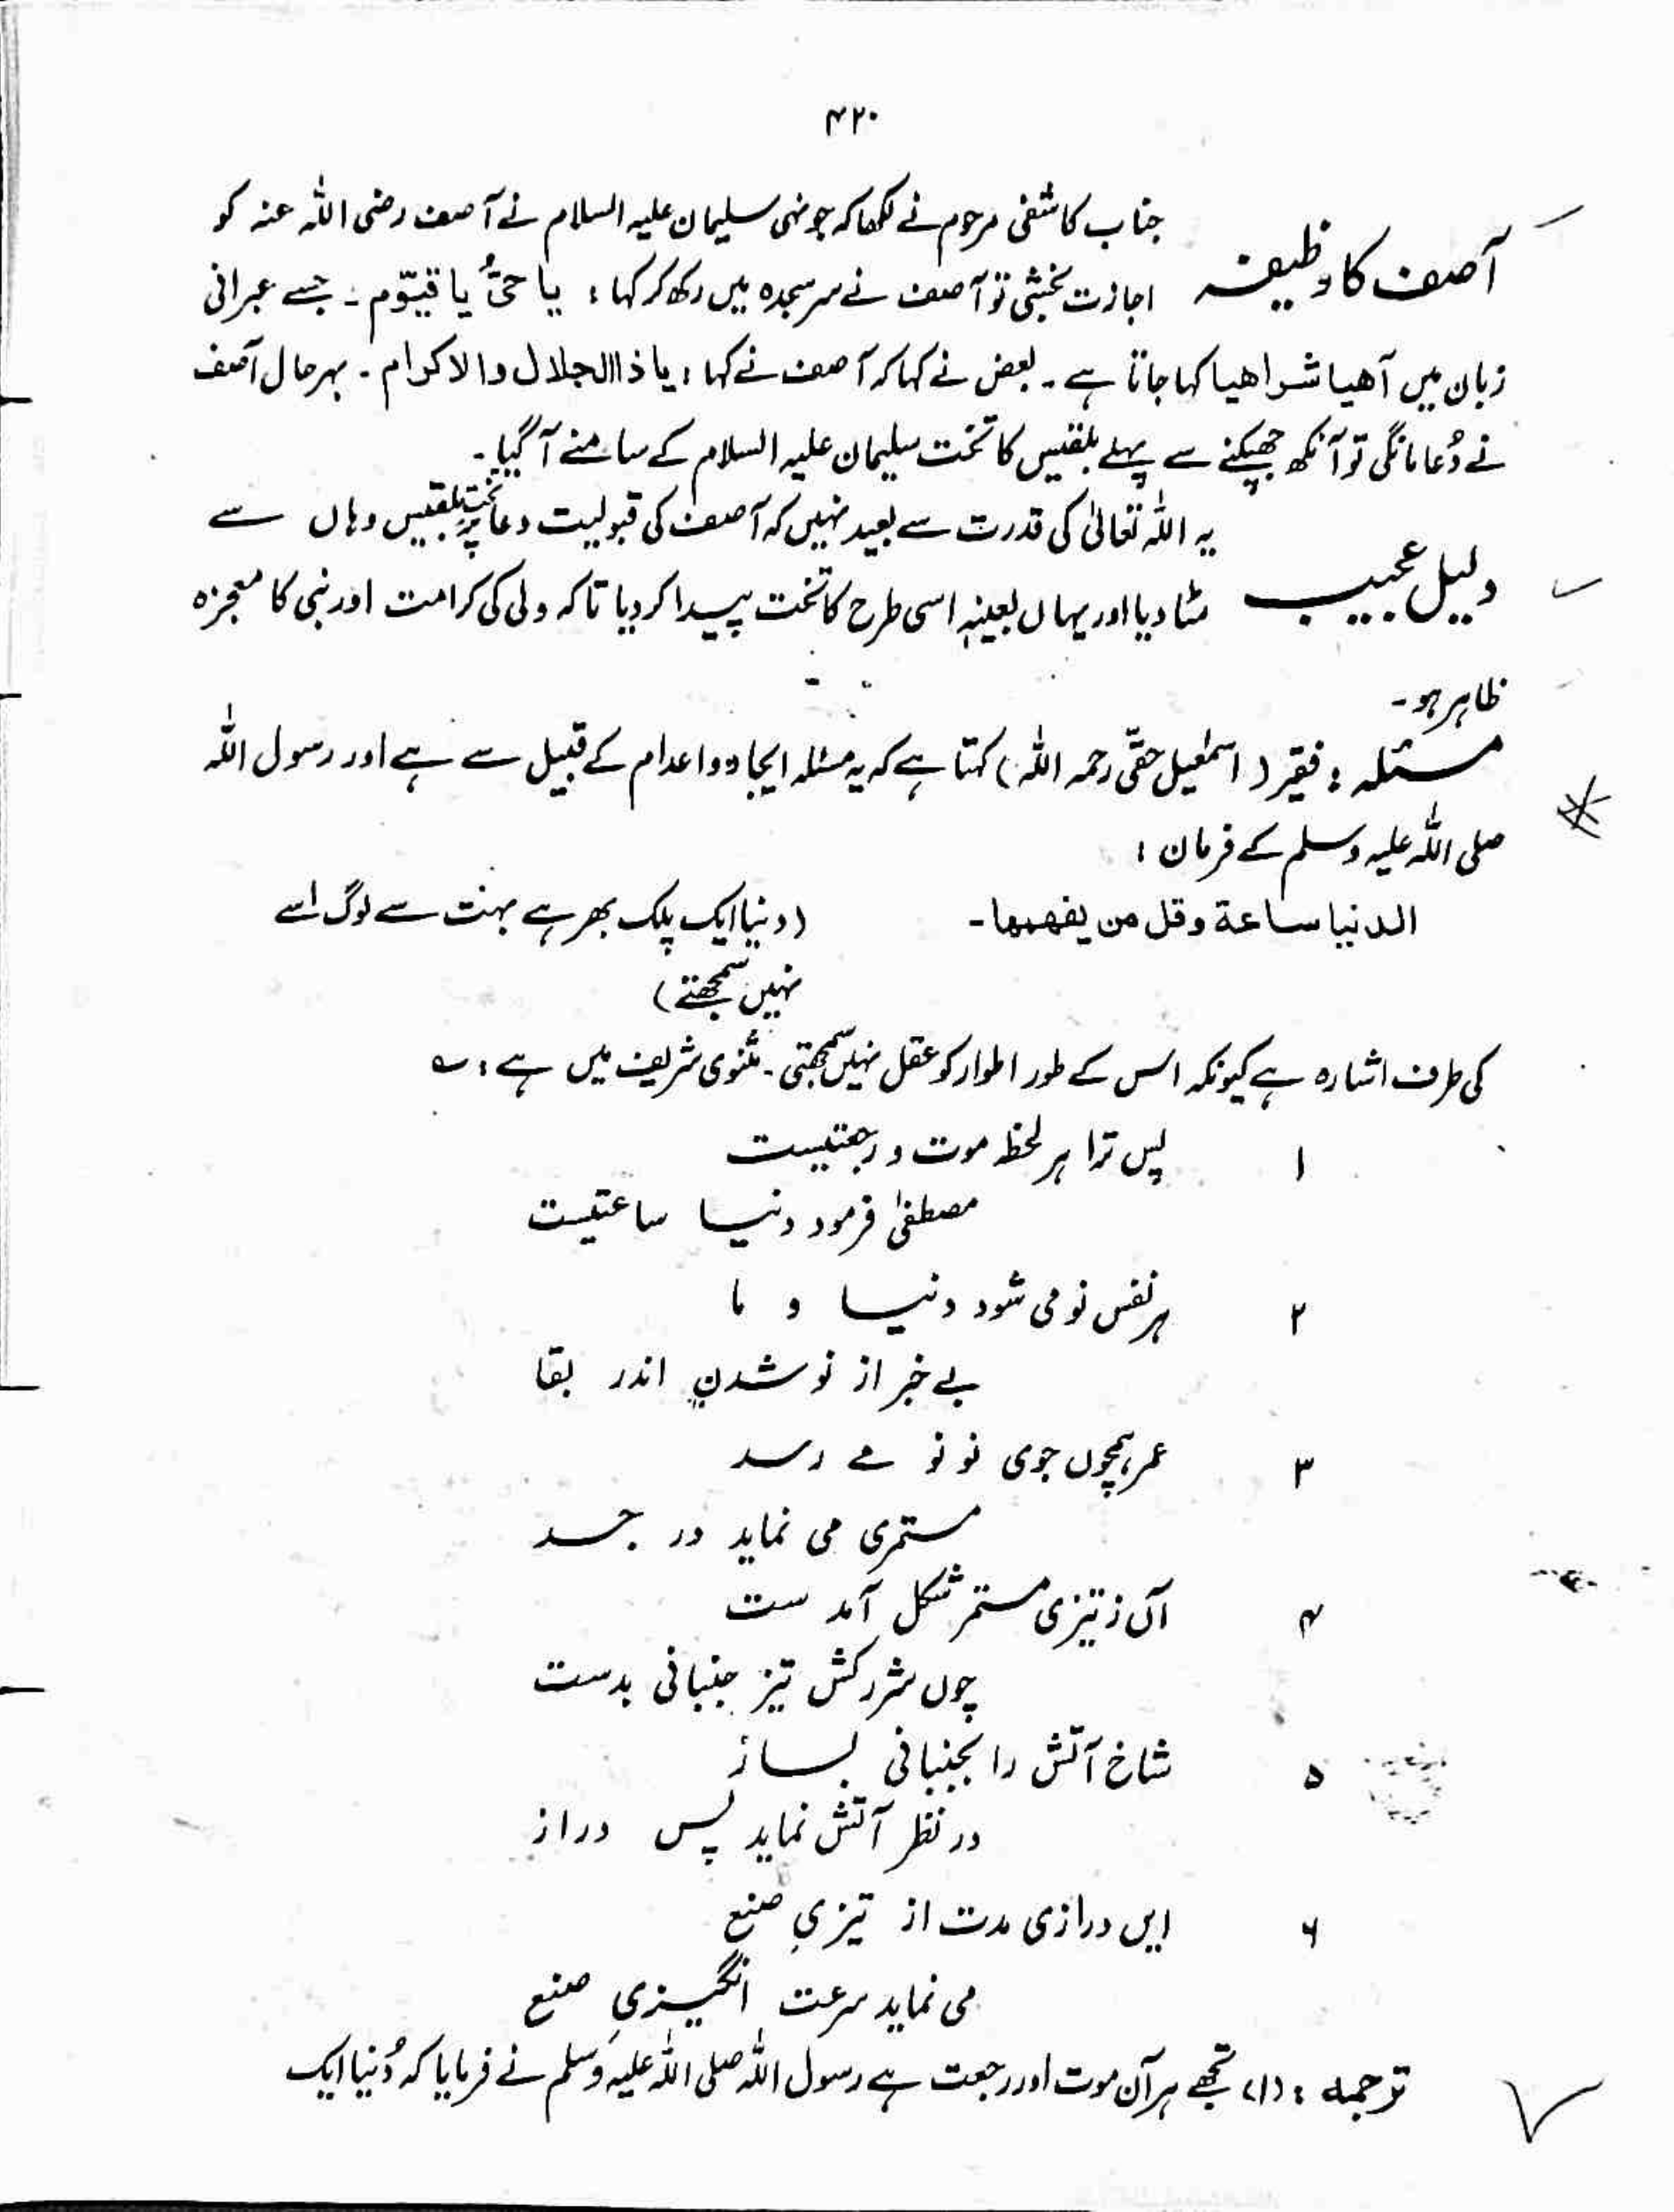 ۴۲۰
جناب کاشفی مرحوم نے لکھا کہ جونہی سلیمان علیہ السلام نے آصف رضی اللہ عنہ کو
آصف کا وظیفہ
اجازت بخشی تو آصف نے سر سجدہ میں رکھ کر کہا : یا حیُّ یا قیّوم ۔ جسے عبرانی
زبان میں آھیا شراھیا کہا جاتا ہے ۔ بعض نے کہا کہ آصف نے کہا : یا ذاالجلال والاکرام ۔ بہرحال آصف
نے دُعا مانگی تو آنکھ جھپکنے سے پہلے بلقیس کا تخت سلیمان علیہ السلام کے سامنے آ گیا ۔
یہ اللہ تعالیٰ کی قدرت سے بعید نہیں کہ آصف کی قبولیت دعا پر تختِ بلقیس وہاں سے
دلیل عجیب
مٹا دیا اور یہاں بعینہٖ اسی طرح کا تخت پیدا کر دیا تاکہ ولی کی کرامت اور نبی کا معجزہ
ظاہر ہو ۔
مسئلہ : فقیر ( اسمٰعیل حقّی رحمہ اللہ ) کہتا ہے کہ یہ مسئلہ ایجاد و اعدام کے قبیل سے ہے اور رسول اللہ
صلی اللہ علیہ وسلم کے فرمان :
الدنیا ساعة وقل من یفھمھا ۔ ( دنیا ایک پلک بھر ہے بہت سے لوگ اسے
نہیں سمجھتے )
کی طرف اشارہ ہے کیونکہ اس کے طور اطوار کو عقل نہیں سمجھتی ۔ مثنوی شریف میں ہے : ؎
۱ پس ترا ہر لحظہ موت و رجعتیست
مصطفیٰ فرمود دنیا ساعتیست
۲ ہر نفس نو می شود دنیا و ما
بے خبر از نو شدنِ اندر بقا
۳ عمر ہمچوں جوی نو نو مے رسد
مستمری می نماید در جسد
۴ آں ز تیزی مستمر شکل آمد ست
چوں شرر کش تیز جنبانی بدست
۵ شاخ آتش را بجنبانی بساز
در نظر آتش نماید پس دراز
۶ ایں درازی مدت از تیزیِ صنع
می نماید سرعت انگیزیِ صنع
ترجمہ : (۱) تجھے ہر آن موت اور رجعت ہے رسول اللہ صلی اللہ علیہ وسلم نے فرمایا کہ دُنیا ایک